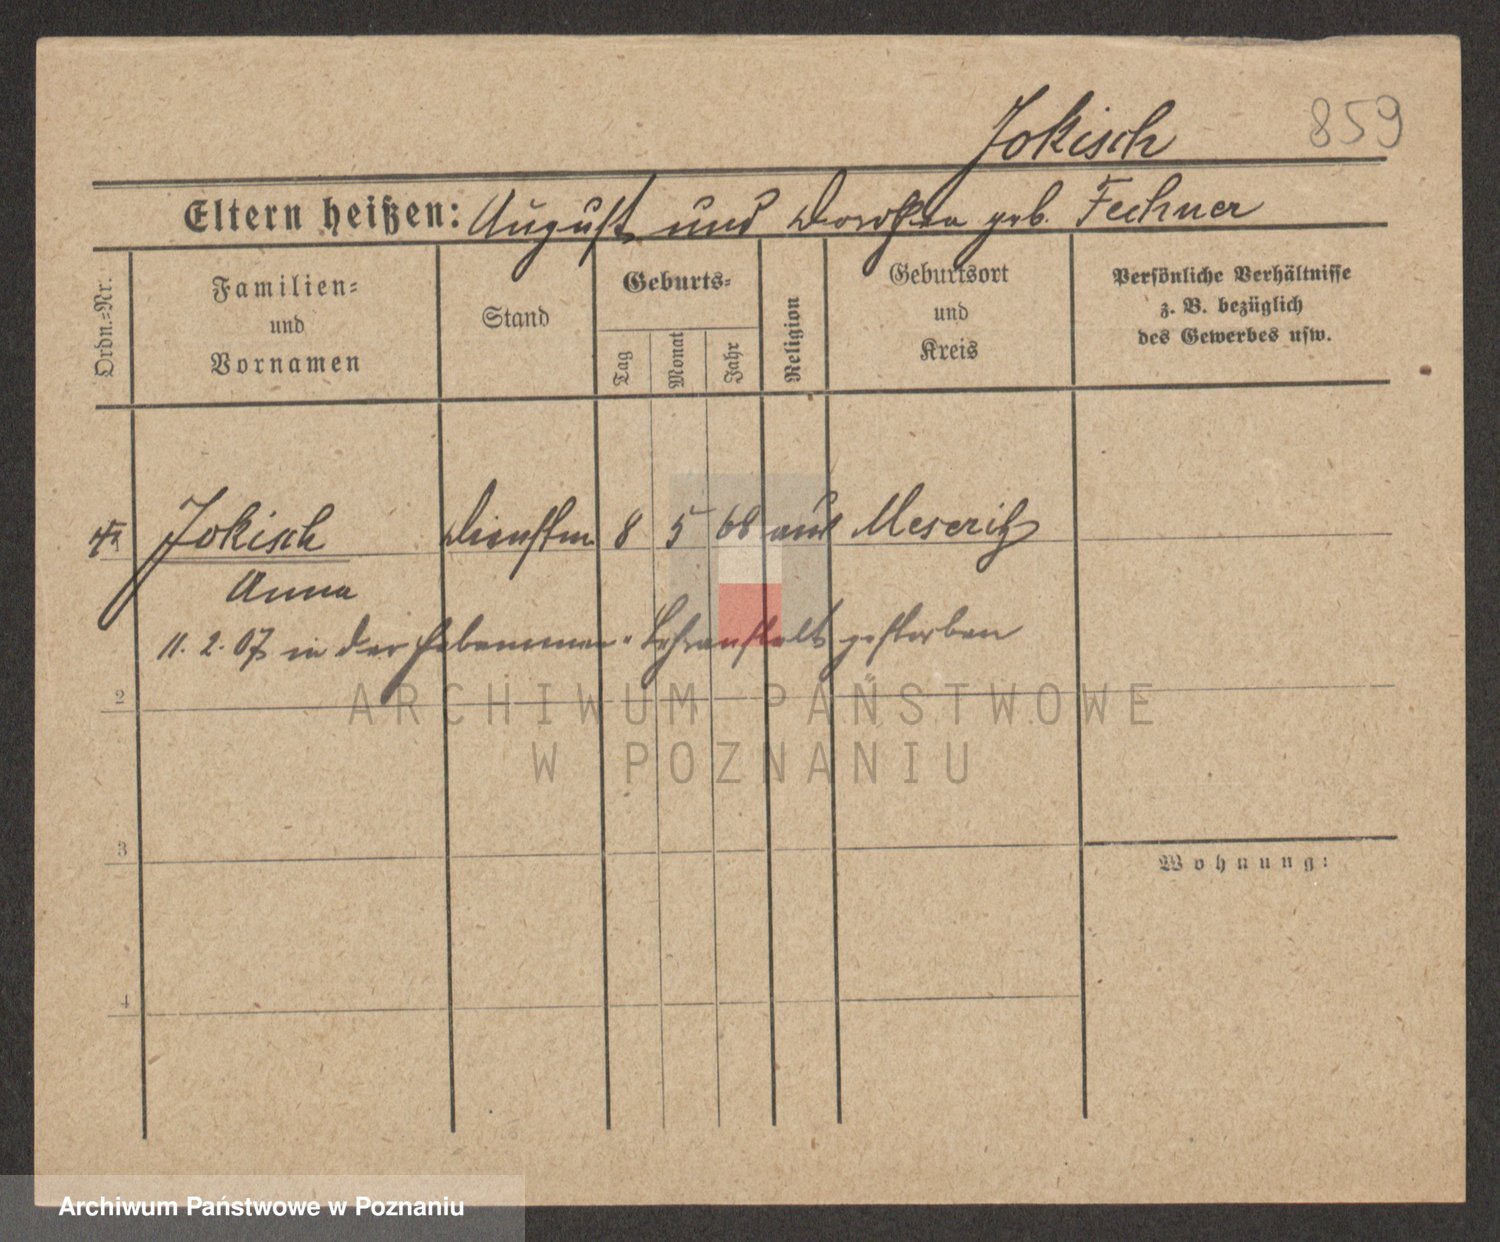 Jokisch 859
Eltern heißen: August und Dorothea geb. Fechner
Ordn.=Nr.
Familien=
und
Vornamen
Stand
Geburts=
Tag
Monat
Jahr
Religion
Geburtsort
und
Kreis
Persönliche Verhältnisse
z. B. bezüglich
des Gewerbes usw.
Jokisch Dienstm 8 5 68 Meseritz
Anna
11. 2. 07 in der Hebammen-Lehranstalt gestorben
2
3
4
Wohnung:
ARCHIWUM PAŃSTWOWE
W POZNANIU
Archiwum Państwowe w Poznaniu